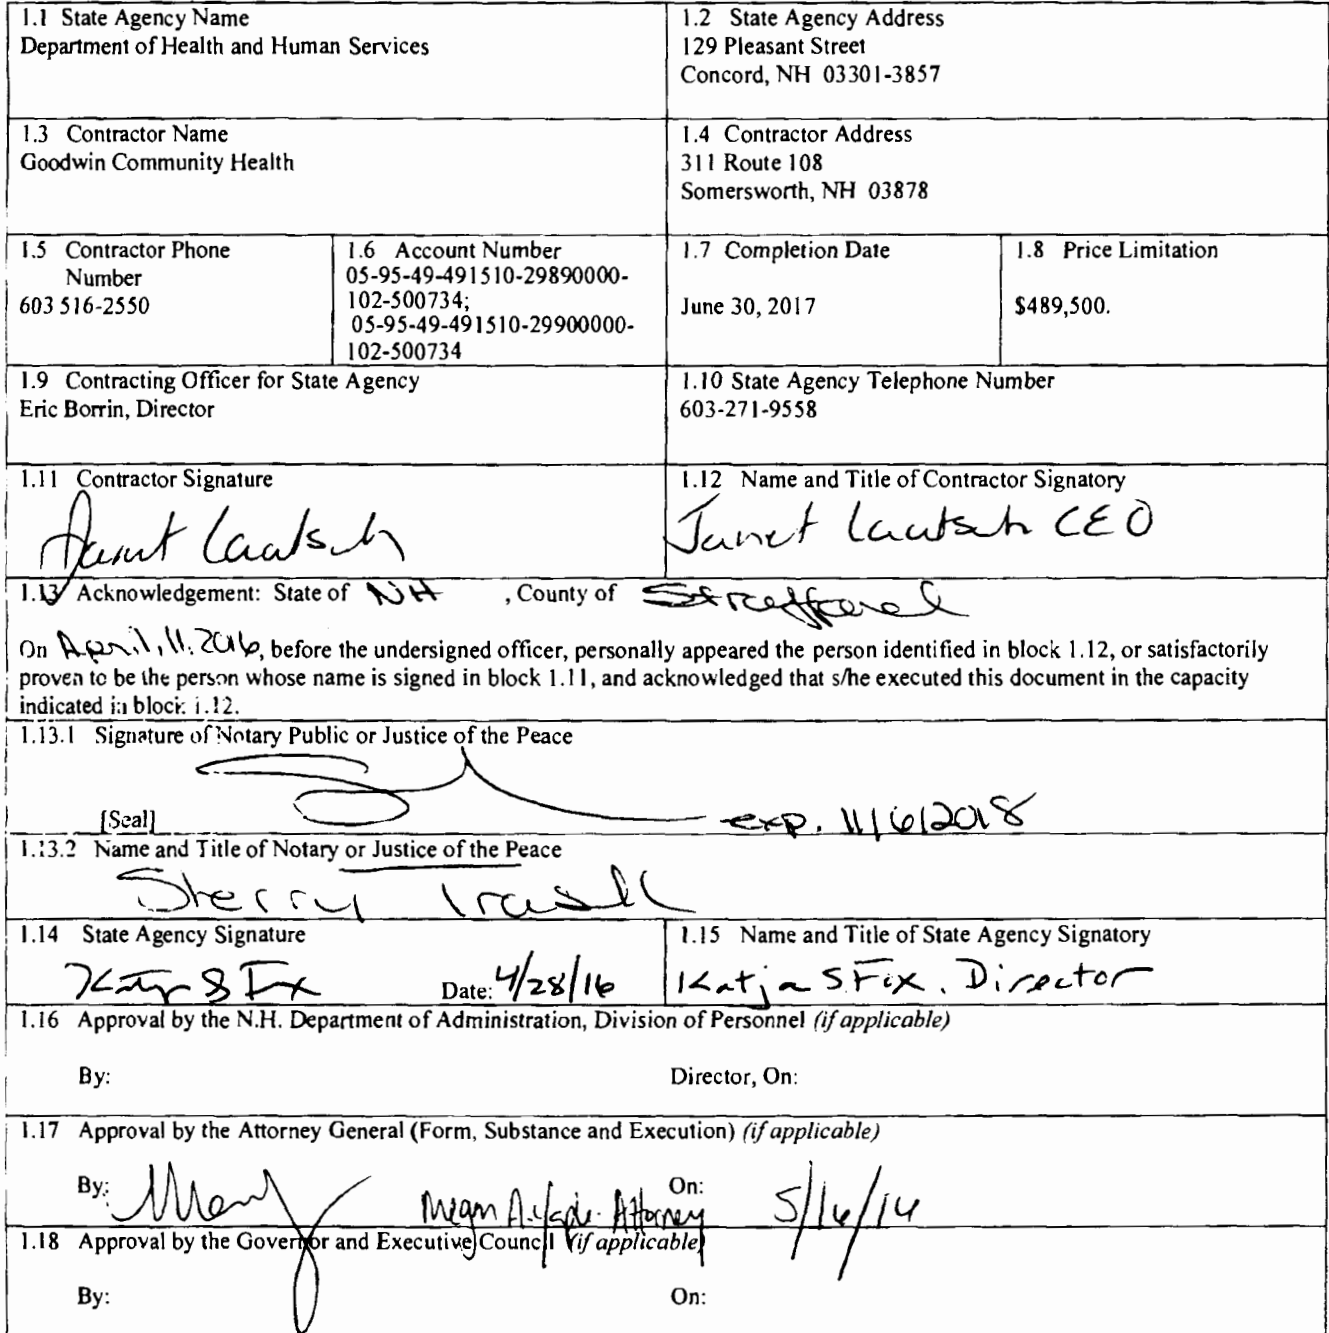 1.1 State Agency Name
Department of Health and Human Services
1.2 State Agency Address
129 Pleasant Street
Concord, NH 03301-3857
1.3 Contractor Name
Goodwin Community Health
1.4 Contractor Address
311 Route 108
Somersworth, NH 03878
1.5 Contractor Phone
Number
603 516-2550
1.6 Account Number
05-95-49-491510-29890000-
102-500734;
05-95-49-491510-29900000-
102-500734
1.7 Completion Date
June 30, 2017
1.8 Price Limitation
$489,500.
1.9 Contracting Officer for State Agency
Eric Borrin, Director
1.10 State Agency Telephone Number
603-271-9558
1.11 Contractor Signature
Janet Laatsch
1.12 Name and Title of Contractor Signatory
Janet Laatsch CEO
1.13 Acknowledgement: State of NH , County of Strafford
On April, 11, 2016, before the undersigned officer, personally appeared the person identified in block 1.12, or satisfactorily
proven to be the person whose name is signed in block 1.11, and acknowledged that s/he executed this document in the capacity
indicated in block 1.12.
1.13.1 Signature of Notary Public or Justice of the Peace
[Seal]
exp. 11/6/2018
1.13.2 Name and Title of Notary or Justice of the Peace
Sherry
1.14 State Agency Signature
Date: 4/28/16
1.15 Name and Title of State Agency Signatory
Katja S Fox. Director
1.16 Approval by the N.H. Department of Administration, Division of Personnel (if applicable)
By:
Director, On:
1.17 Approval by the Attorney General (Form, Substance and Execution) (if applicable)
By: Megan A. Attorney On:
1.18 Approval by the Governor and Executive Council (if applicable)
By:
On: